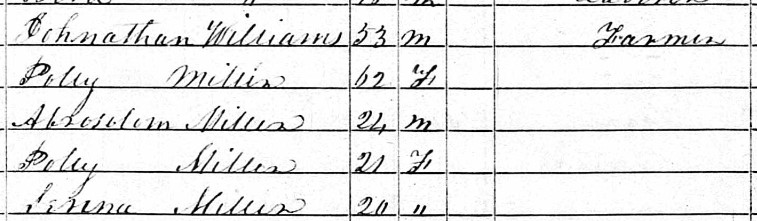 Johnathan Williams 53 m Farmer
Polly Miller 62 F
Abrosolom Miller 24 m
Polly Miller 21 F
Miller 20 "